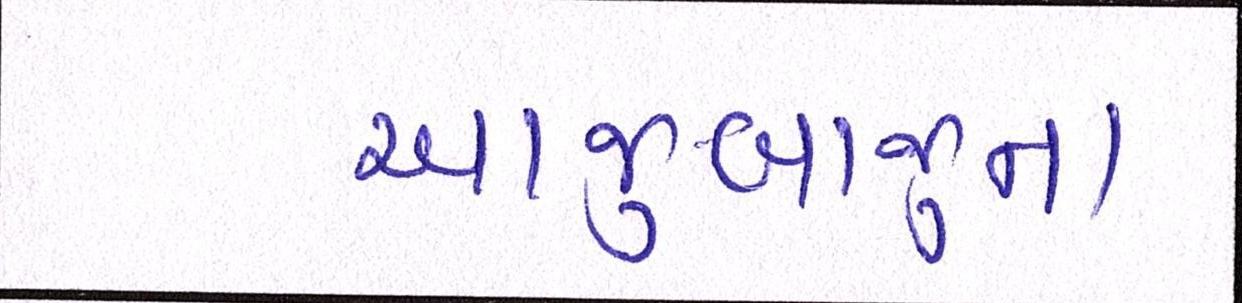 આજુબાજુના